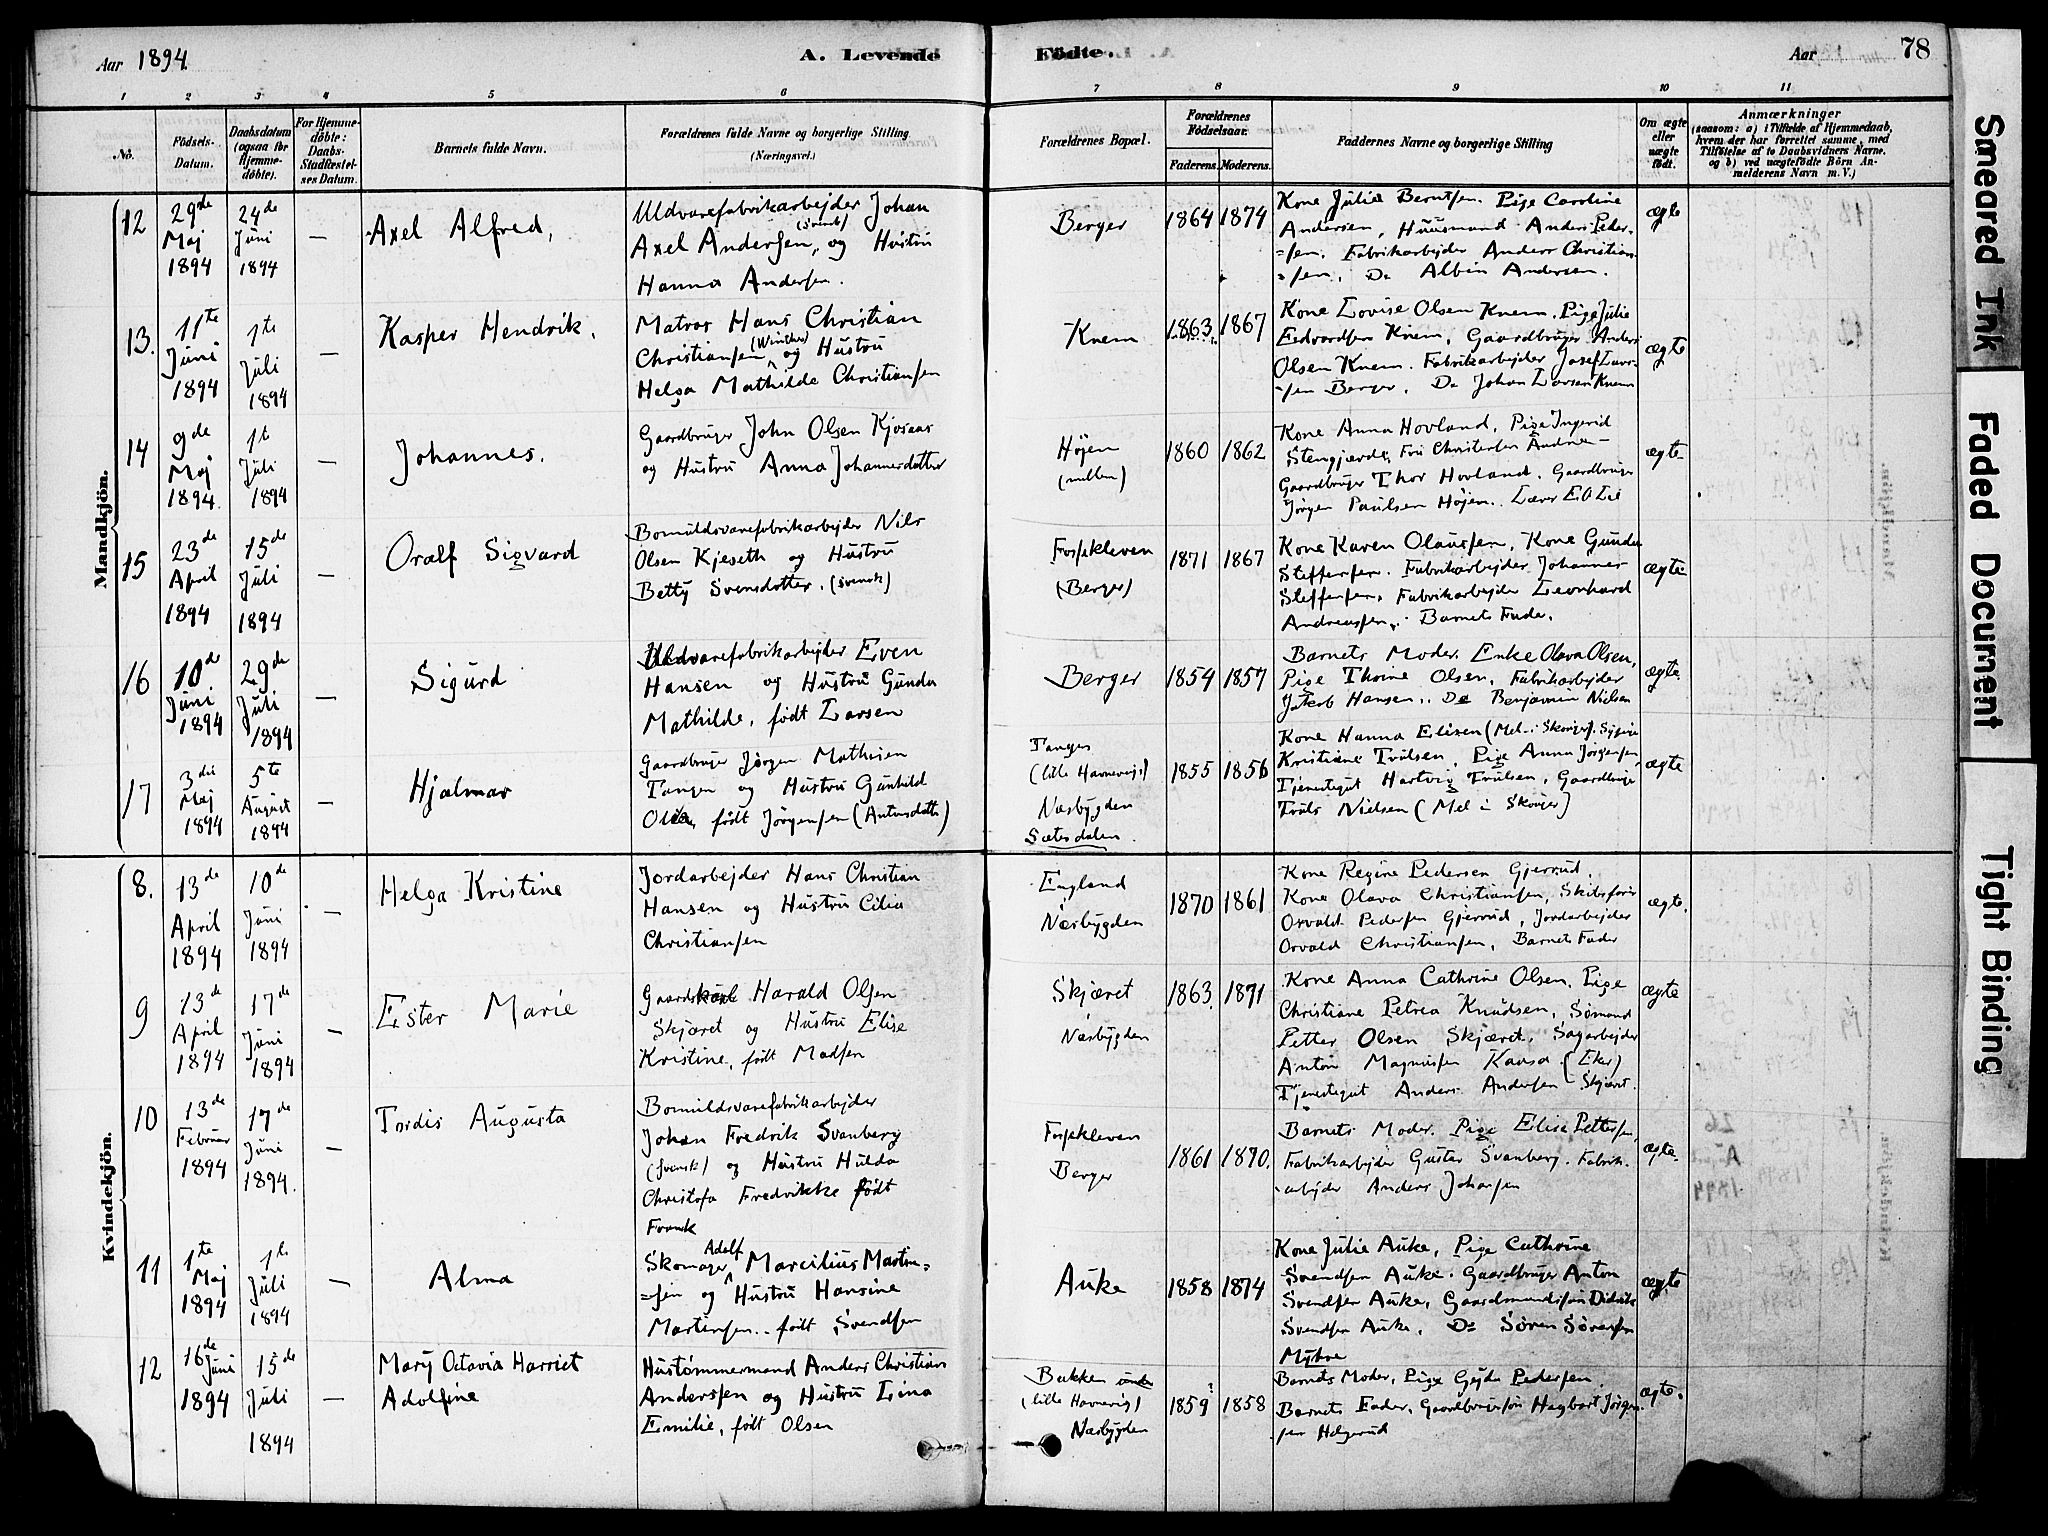 Aar 1894
A. Levende
Fødte.
Aar
78
1 2 3 4 5 6 7 8 9 10 11
No.
Fødsels-
Datum.
Daabsdatum
(ogsaa for
Hjemme-
døbte).
For Hjemme-
døbte:
Daabs-
Stadfæstel-
ses Datum.
Barnets fulde Navn.
Forældrenes fulde Navne og borgerlige Stilling
(Næringsvei.)
Forældrenes Bopæl.
Forældrenes
Fødselsaar.
Faderens. Moderens.
Faddernes Navne og borgerlige Stilling
Om ægte
eller
uægte
født.
Anmærkninger
(saasom: a) i Tilfælde af Hjemmedaab,
hvem der har forrettet samme, med
Tilføielse af to Daabsvidners Navne.
og b) ved uægtefødte Børn An-
melderens Navn m. V.)
Mandkjön.
12
29de
Maj
1894
24de
Juni
1894
—
Axel Alfred,
Uldvarefabrikarbejder Johan
Axel Andersen, (svensk) og Hustru
Hanna Andersen.
Berger
1864
1874
Kone Julie Berntsen. Pige Caroline
Andersen, Huusmand Anders Peder-
=sen. Fabrikarbejder Anders Christian-
=sen. Do Albin Andersen.
ægte
13.
11te
Juni
1894
1te
Juli
1894
—
Kasper Hendrik.
Matros Hans Christian
Christiansen (Winther) og Hustru
Helga Mathilde Christiansen
Knem
1863
1867
Kone Lovise Olsen Knem. Pige Julie
Edvardsen Knem, Gaardbruger Anders
Olsen Knem. Fabrikarbejder Josef Lar-
-sen Berger, Do Johan Larsen Knem
ægte
14
9de
Maj
1894.
1te
Juli
1894
—
Johannes.
Gaardbruger John Olsen Kjosaas
og Hustru Anna Johannesdatter
Højen
(mellem)
1860
1862
Kone Anna Hovland, Pige Ingerid
Stengjerde, Fru Christensen
Gaardbruger Thor Hovland. Gaardbruger
Jørgen Paulsen Højen. Lærer E O Lie
ægte
15
23de
April
1894
15de
Juli
1894
—
Oralf Sigvard
Bomuldsvarefabrikarbejder Nils
Olsen Kjeseth og Hustru
Betty Svensdotter. (svensk)
Fossekleven
(Berger)
1871
1867
Kone Karen Olaussen, Kone Gunda
Steffensen. Fabrikarbejder Johannes
Steffensen, Fabrikarbejder Leonhard
Andreassen,. Barnets Fader.
ægte
16
10de
Juni
1894
29de
Juli
1894
—
Sigurd
Uldvarefabrikarbejder Even
Hansen og Hustru Gunda
Mathilde, født Larsen
Berger
1854
1857
Barnets Moder. Enke Olava Olsen,
Pige Thrine Olsen, Fabrikarbejder
Jakob Hansen,. Do Benjamin Nielsen
ægte.
17
3die
Maj
1894
5te
August
1894
—
Hjalmar
Gaardbruger Jørgen Mathisen
Tangen og Hustru Gunhild
Olea, født Jørgensen (Antonsdatter)
Tangen
(lille Havnevig)
Næsbygden
Sætesdalen.
1855
1856
Kone Hanna Elisen (Mel i Skoger). Sypige
Kristiane Trulsen, Pige Anna Jørgensen,
Tjenestegut Hartvig Trulsen, Gaardbruger
Truls Nielsen (Mel i Skoger)
ægte
Kvindekjön.
8.
13de
April
1894
10de
Juni
1894
—
Helga Kristine
Jordarbejder Hans Christian
Hansen og Hustru Cilia
Christiansen
England
Næsbygden
1870
1861
Kone Regine Pedersen Gjerrud.
Kone Olava Christiansen, Skibsfører
Osvald Pedersen Gjerrud, Jordarbejder
Osvald Christiansen, Barnets Fader
ægte.
9
13de
April
1894
17de
Juni
1894
—
Ester Marie
Gaardskarl Harald Olsen
Skjæret og Hustru Elise
Kristine, født Madsen
Skjæret
Næsbygden
1863
1871
Kone Anna Cathrine Olsen, Pige
Christiane Petrea Knudsen, Sømand
Petter Olsen Skjæret, Sagarbejder
Anton Magnussen Kansa (Eker)
Tjenestegut Anders Andersen Skjæret.
ægte
10
13de
Februar
1894
17de
Juni
1894.
—
Tordis Augusta
Bomuldsvarefabrikarbejder
Johan Fredrik Svanberg
(svensk) og Hustru Hulda
Christofa Fredrikke født
Frank
Fossekleven
Berger
1861
1870.
Barnets Moder. Pige Elise Pettersen,
Fabrikarbejder Gustav Svanberg. Fabrik-
-arbejder Anders Johansen
ægte.
11
1te
Maj
1894
1te
Juli
1894
—
Alma
Skomager Adolf Marcilius Martin=
=sen og Hustru Hansine
Martinsen.. født Svendsen
Auke
1858
1874
Kone Julie Auke, Pige Cathrine
Svendsen Auke. Gaardbruger Anton
Svendsen Auke, Gaardmandssøn Didrik
Svendsen Auke. Do Søren Sørensen
Myhre
ægte
12
16de
Juni
1894
15de
Juli
1894
—
Mary Octavia Harriet
Adolfine
Hustømmermand Anders Christian
Anderssen og Hustru Lina
Emilie, født Olsen
Bakken
(lille Havnevig)
Næsbygden
1859
1858
Barnets Moder, Pige Gejda Pedersen.
Barnets Fader, Gaardbrugersøn Hagbart Jørgen-
sen Helgerud
ægte.
Smeared Ink
Faded Document
Tight Binding